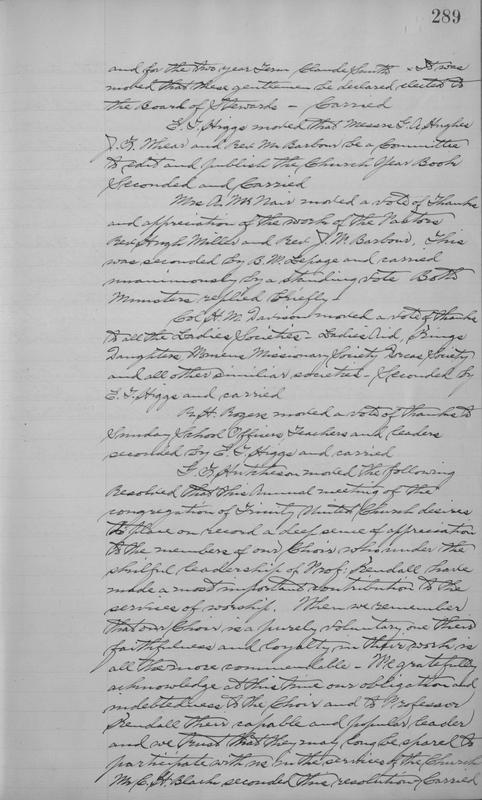 289
and for the two year Term Claude Smith - It was
moved that these gentlemen be declared elected to
the Board of Stewards - Carried
E. T. Higgs moved that Messrs L. A. Hughes
J. F. Whear and Rev Mr Barbour be a Committee
to edit and publish the Church Year Book
Seconded and Carried
Mrs A. McNair moved a vote of Thanks
and appreciation of the work of the Pastors
Rev Hugh Miller and Rev J. M. Barbour. This
was seconded by B. W. Lepage and carried
unanimously by a standing vote Both
Ministers replied briefly -
Col H. M. Davison moved a vote of thanks
to all the Ladies Societies - Ladies Aid, Kings
Daughters, Womens Missionary Society Dorcas Society
and all other similiar societies - Seconded by
E. T. Higgs and carried
R. H. Rogers moved a vote of thanks to
Sunday School Officers, Teachers and leaders
seconded by E. T. Higgs and carried
L. F. Hutcheson moved the following
Resolved that this Annual meeting of the
congregation of Trinity United Church desires
to place on record a deep sense of appreciation
to the members of our Choir who under the
skilful leadership of Prof: Kendall have
made a most important contribution to the
services of worship. When we remember
that our Choir is a purely voluntary one their
faithfulness and loyalty in their work is
all the more commendable - We gratefully
acknowledge at this time our obligation and
indebtedness to the Choir and to Professor
Kendall their capable and popular leader
and we trust that they may long be spared to
participate with us in the services of the Church
Mr C. H. Black seconded this resolution Carried